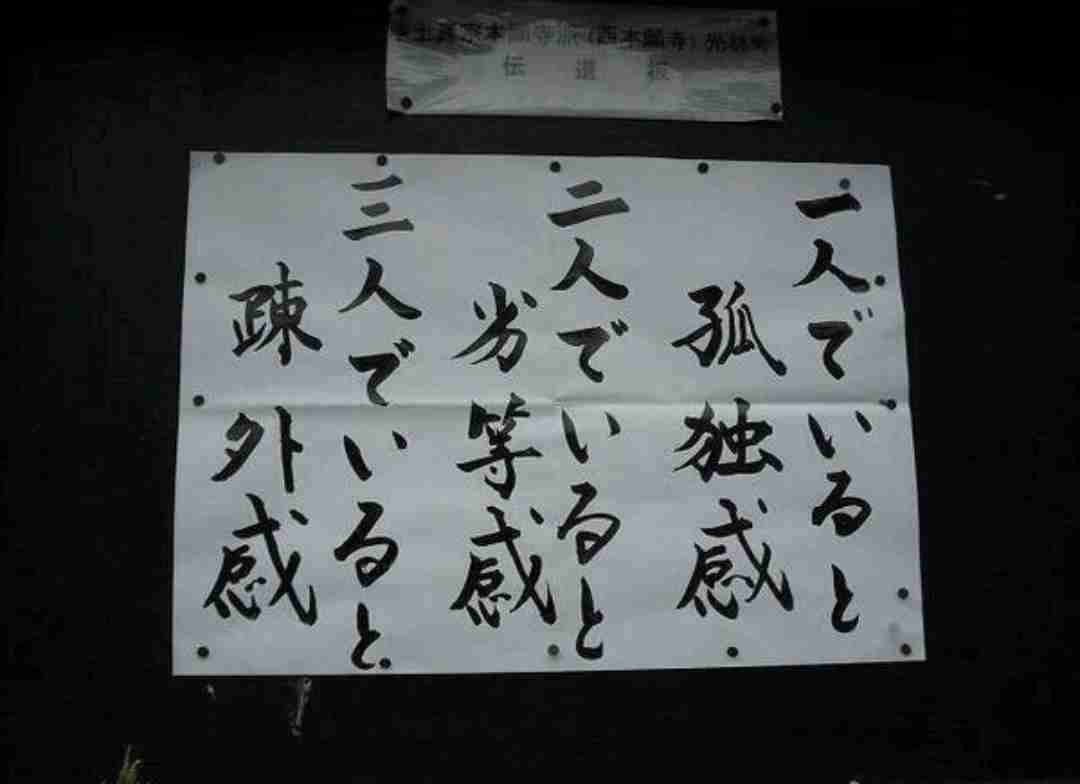 土真宗本願寺派(西本願寺)
伝道板
一人でいると
孤独感
二人でいると
劣等感
三人でいると
疎外感